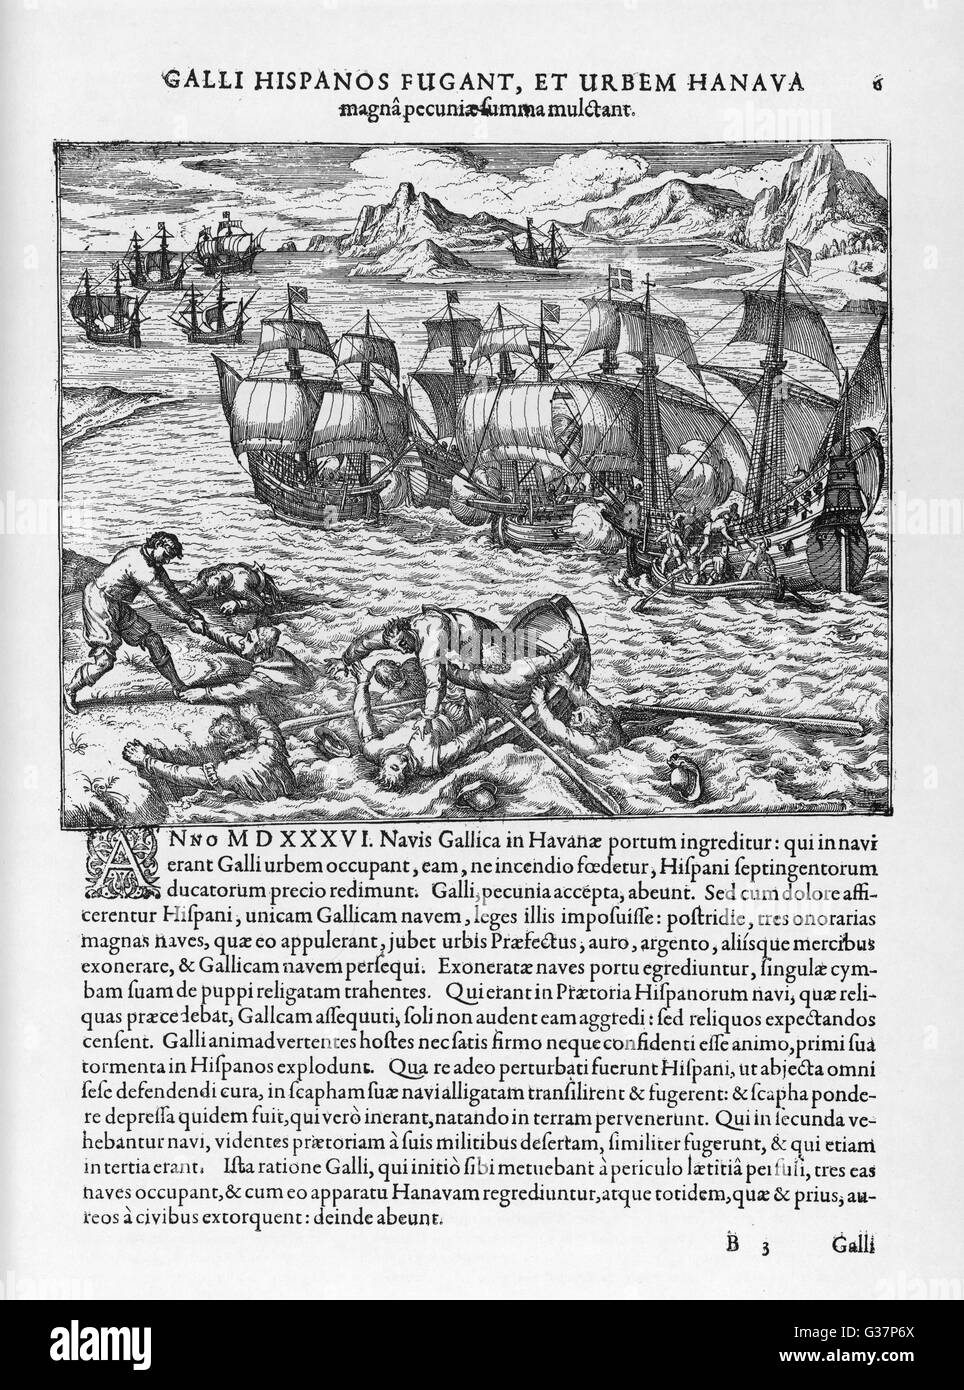 GALLI HISPANOS FUGANT, ET URBEM HANAVA 6
magnâ pecuniæ summa mulctant.
ANNO MDXXXVI. Navis Gallica in Havanæ portum ingreditur: qui in navi
erant Galli urbem occupant, eam, ne incendio fœdetur, Hiſpani ſeptingentorum
ducatorum precio redimunt. Galli, pecunia accepta, abeunt. Sed cum dolore affi-
cerentur Hiſpani, unicam Gallicam navem, leges illis impoſuiſſe: poſtridie, tres onorarias
magnas naves, quæ eo appulerant, jubet urbis Præfectus, auro, argento, aliíſque mercibus
exonerare, & Gallicam navem perſequi. Exoneratæ naves portu egrediuntur, ſingulæ cym-
bam ſuam de puppi religatam trahentes. Qui erant in Prætoria Hiſpanorum navi, quæ reli-
quas præcedebat, Gallcam aſſequuti, ſoli non audent eam aggredi: ſed reliquos expectandos
cenſent. Galli animadvertentes hoſtes nec ſatis firmo neque confidenti eſſe animo, primi ſua
tormenta in Hiſpanos explodunt. Qua re adeo perturbati fuerunt Hiſpani, ut abjecta omni
ſeſe defendendi cura, in ſcapham ſuæ navi alligatam tranſilirent & fugerent: & ſcapha ponde-
re depreſſa quidem fuit, qui verò inerant, natando in terram pervenerunt. Qui in ſecunda ve-
hebantur navi, videntes prætoriam à ſuis militibus deſertam, ſimiliter fugerunt, & qui etiam
in tertia erant. Iſta ratione Galli, qui initiò ſibi metuebant à periculo lætitiâ perfuſi, tres eas
naves occupant, & cum eo apparatu Hanavam regrediuntur, atque totidem, quæ & prius, au-
reos à civibus extorquent: deinde abeunt.
B 3 Galli
alamy
Image ID: G37P6X
www.alamy.com